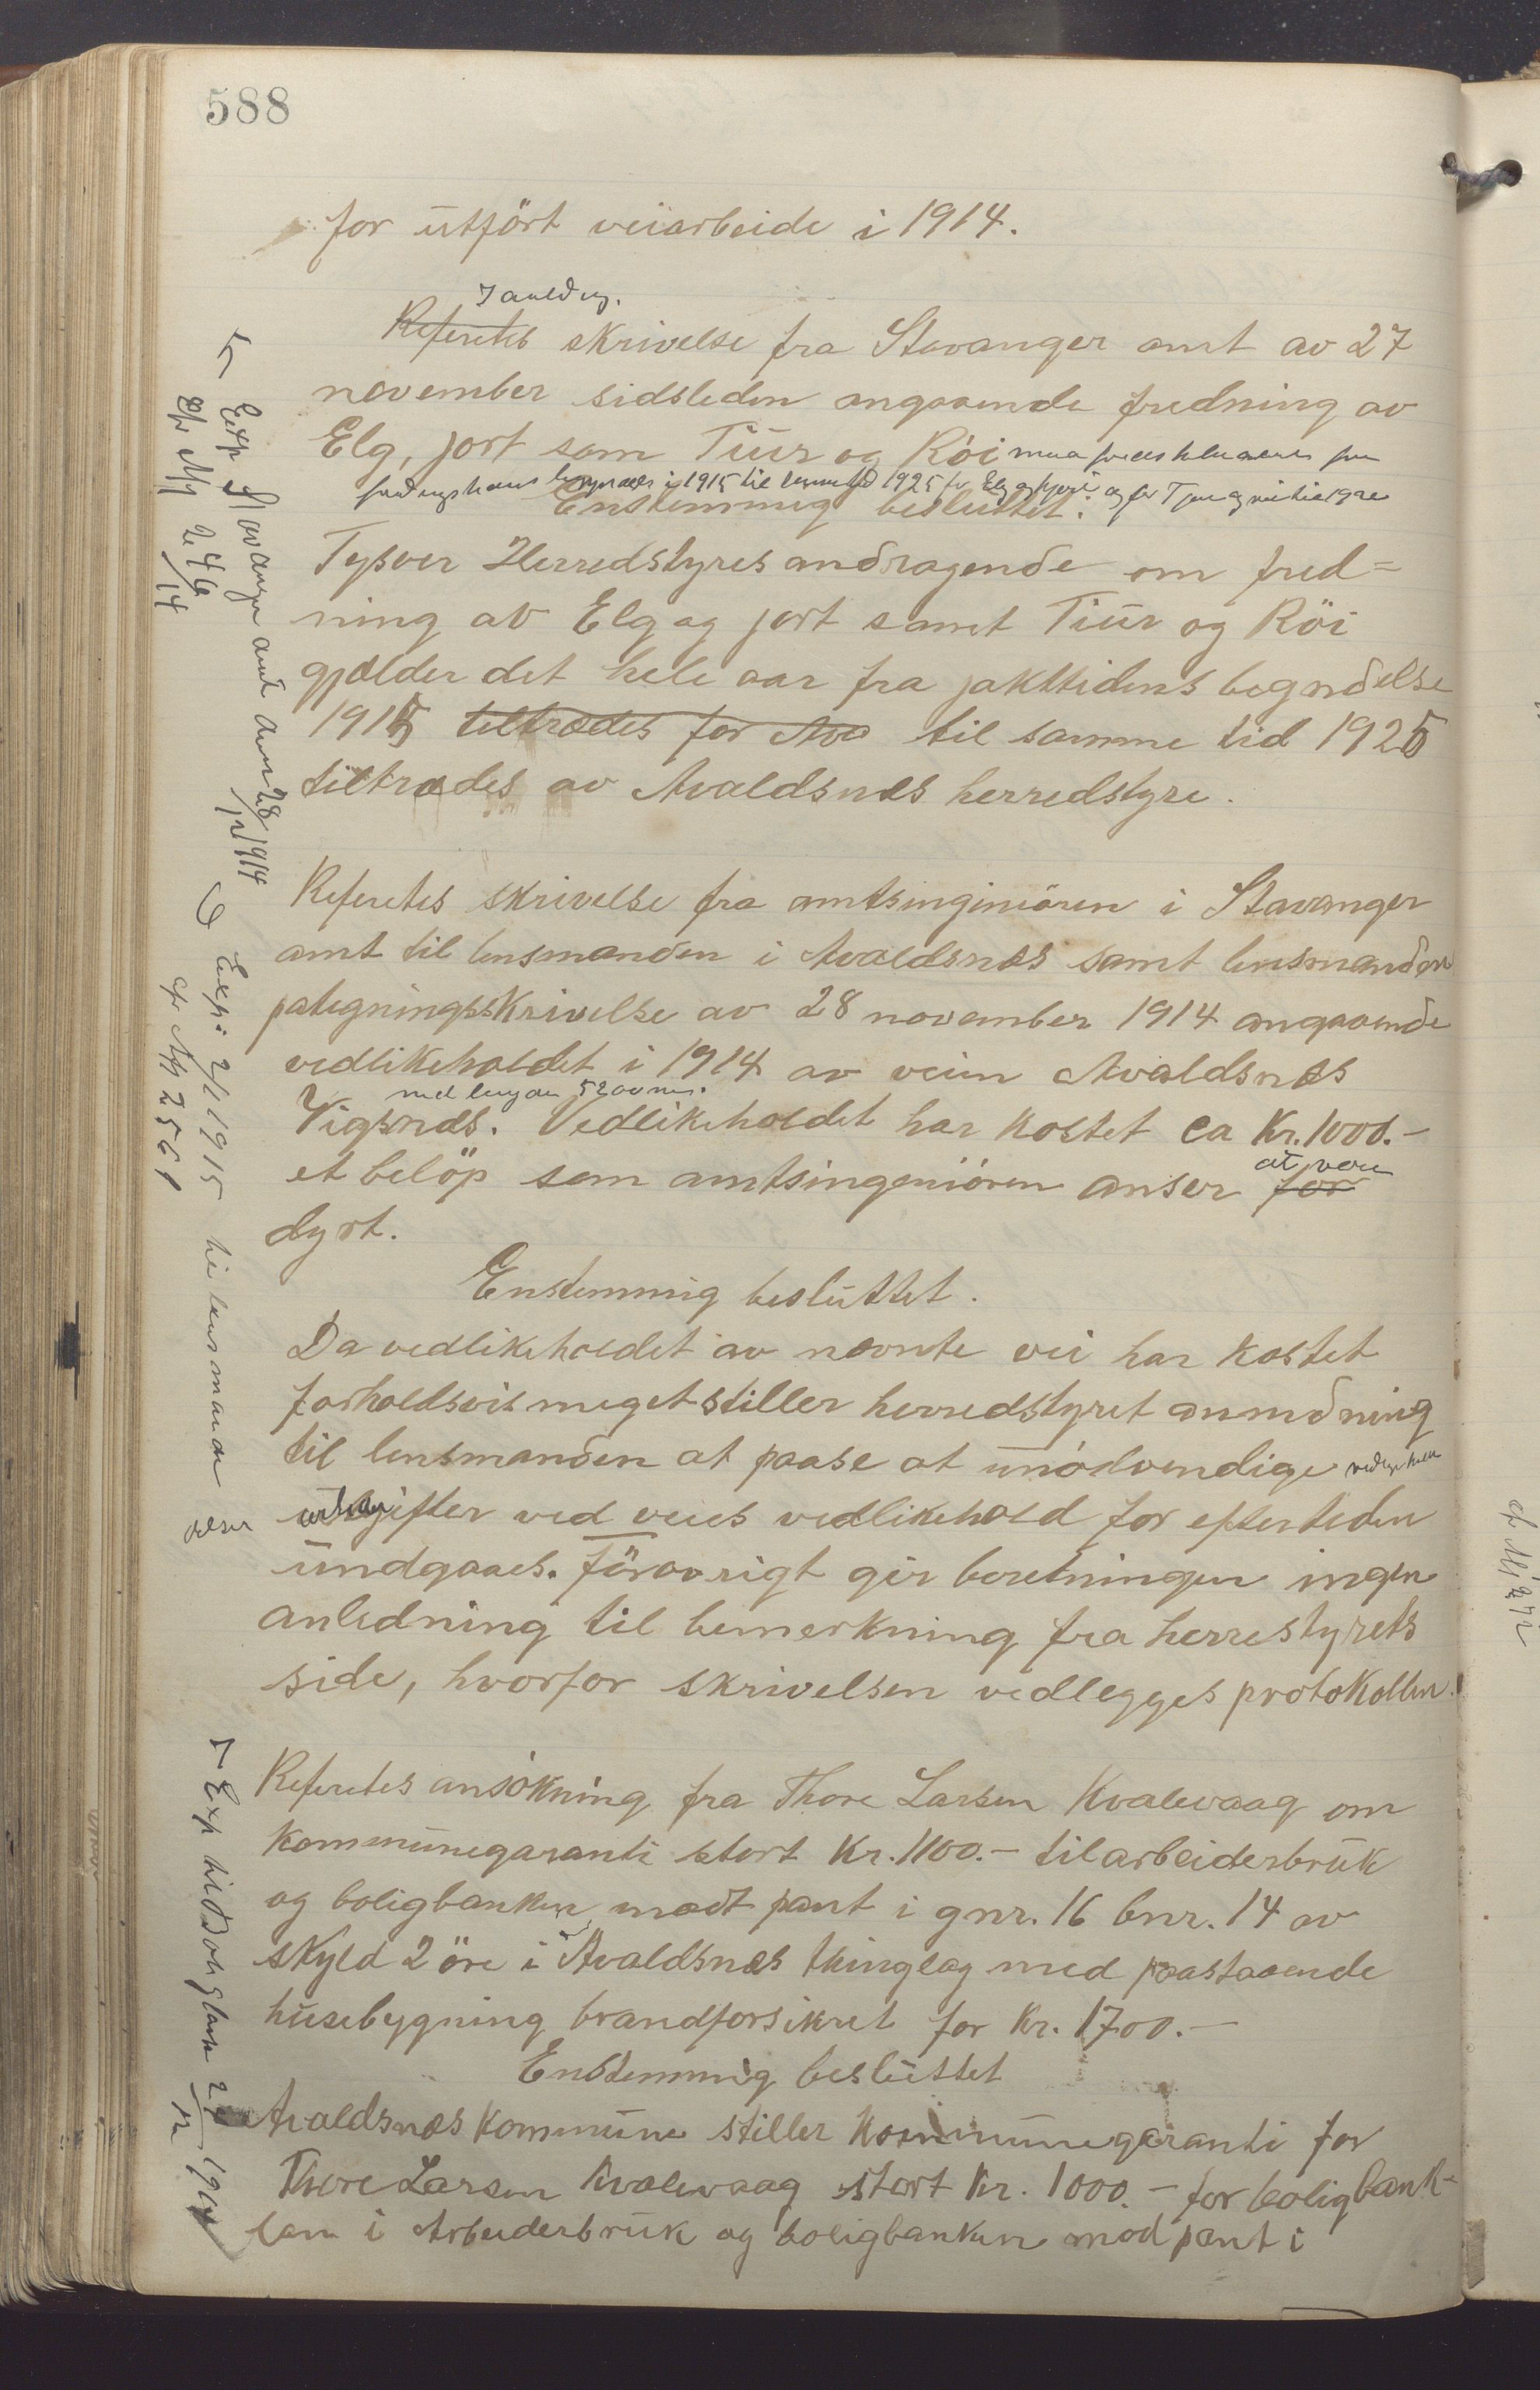 588
for utført veiarbeide i 1914.
I anledng.
Referetes skrivelse fra Stavanger amt av 27
november sidsleden angaaende fredning av
Elg, jort som Tiur og Röi maa
i 1915 til 1925 for Elg og
Enstemmig besluttet:
Tysver Herredstyres andragende om fred=
ning av Elg og jort samt Tiur og Röi
gjælder det hele aar fra jakttidens begndelse
1915 tiltrædes for Ava til samme tid 1925
tiltrædes av Avaldsnæs herredstyre.
Referetes skrivelse fra amtsinginiören i Stavanger
amt til lensmanden i Avaldsnæs samt lensmanden
pategningsskrivelse av 28 november 1914 angaaende
vedlikeholdet i 1914 av veien Avaldsnæs
med lengde 5200 m.
Vigsnæs. Vedlikeholdet har kostet ca Kr. 1000.-
et belöp som amtsingeniören anser for
at være
dyrt.
Enstemmig besluttet.
Da vedlikeholdet av nævnte vei har kostet
forholdsvis meget stiller herredstyret anmdning
til lensmanden at paase at unödvendige
utgifter ved veies vedlikehold for eftertiden
undgaaes. Förovrigt gir beretningen ingen
anledning til bemerkning fra herrestyrets
side, hvorfor skrivelsen vedlegges protokollen.
Referetes ansökning fra Thore Larsen Kvalevaag om
Kommunegaranti stort Kr. 1100.- til arbeiderbruk
og boligbanken modt pant i gnr. 16 bnr. 14 av
skyld 2 öre i Avaldsnæs thinglag med paastaaende
husebygning brandforsikret for Kr. 1700.-
Enstemmig besluttet
Avaldsnæs kommune stiller Kommunegaranti for
Thore Larsen Kvalevaag stort Kr. 1000.- for boligbank-
laan i Arbeiderbruk og boligbanken mod pant i
Exp Stavanger amt 28/12 1914
Exp. 2/1 1915 til lensmanden
Exp til Boligbank 1914